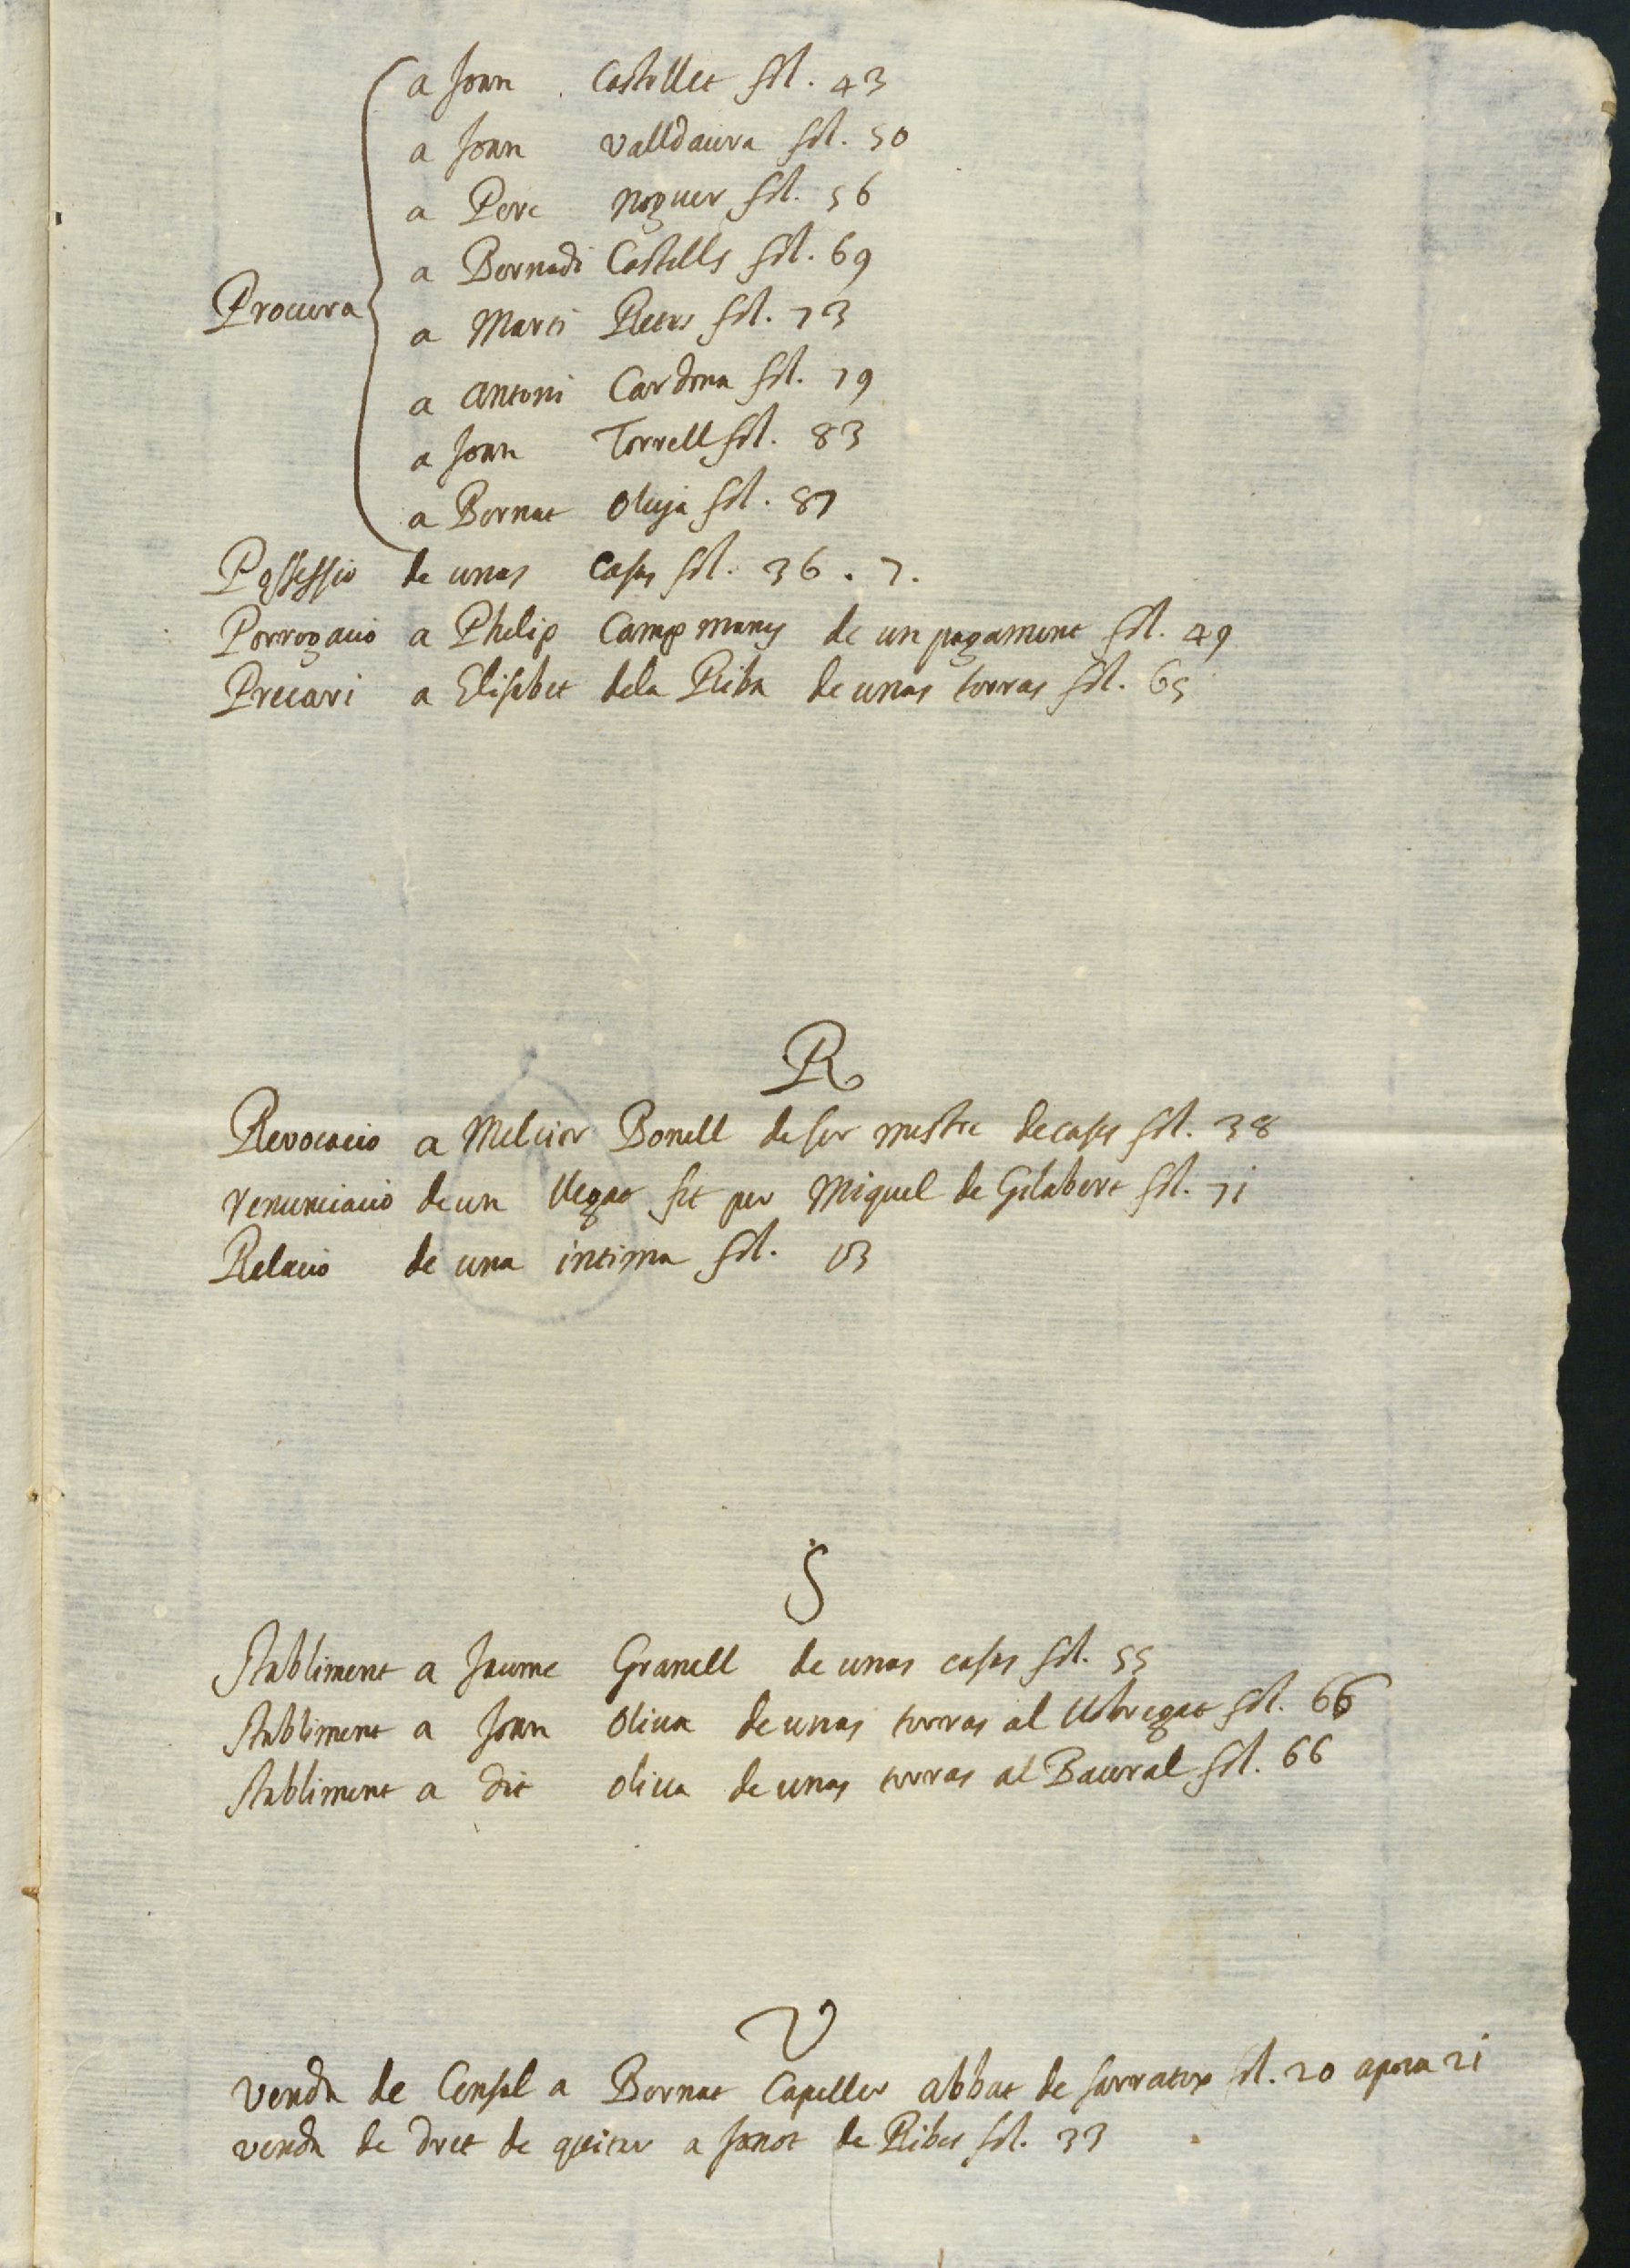 a Joan Castellet fol. 43
a Joan Valldaura fol. 50
a Pere Noguer fol. 56
a Bernadi Castells fol. 69
Procura a Marti Reus fol. 73
a Antoni Cardona fol. 79
a Joan Torrell fol. 83
a Bernat Oluja fol. 87
Possessio de unas casas fol. 36. 7.
Porrogacio a Phelip Campmany de un pagament fol. 49
Precari a Elisabet de la Riba de unas terras fol. 65
R
Revocacio a Melcior Bonell de ser mestre de cases fol. 38
renunciacio de un llegat fet per Miquel de Gilabert fol. 71
Relacio de una intima fol. 13
S
Stabliment a Jaume Granell de unas casas fol. 55
Stabliment a Joan Oliva de unas terras al Llobregat fol. 66
Stabliment a dit Oliva de unas terras al Baural fol. 66
V
Venda de Censal a Bernat Capeller abbat de Serrateix fol. 20 apoca 21
venda de dret de quitar a Janot de Ribes fol. 33